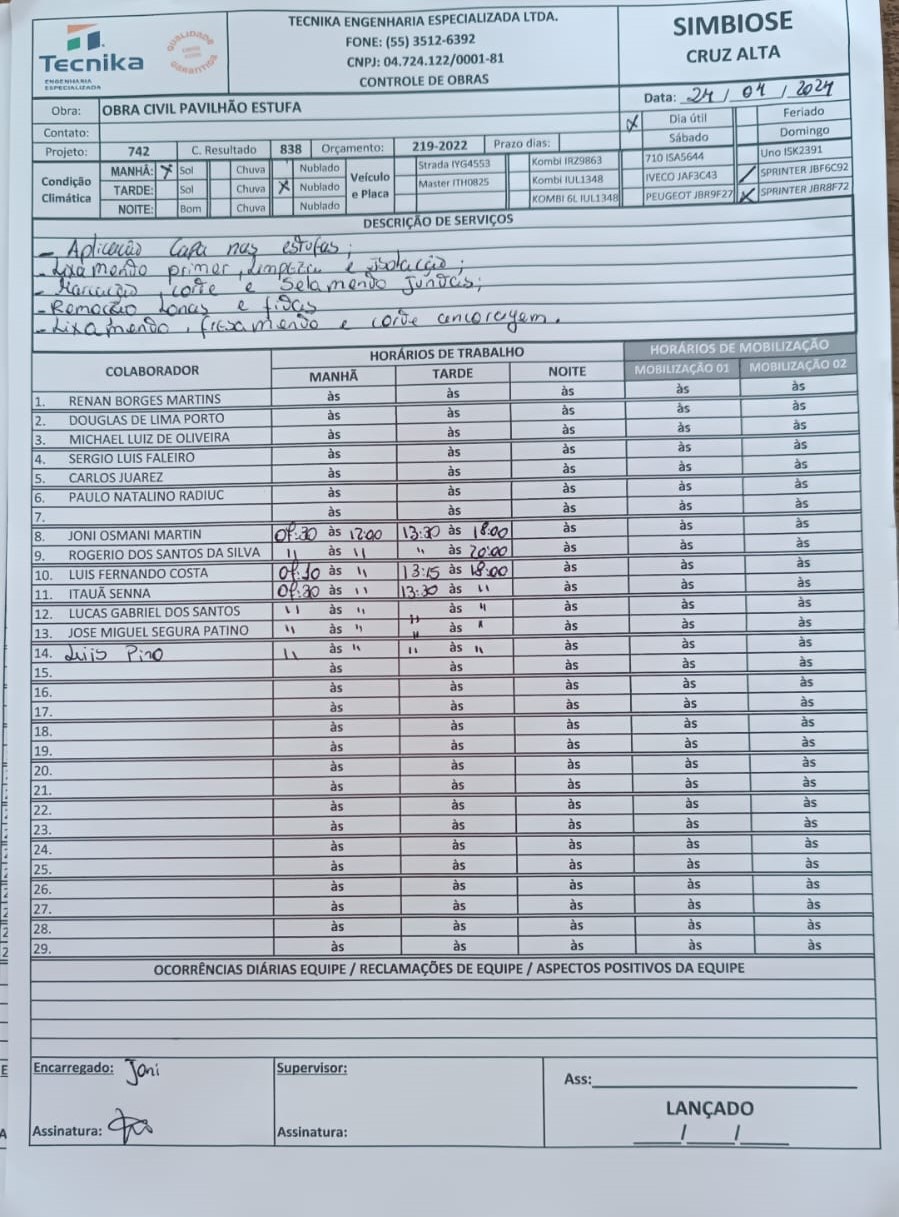 Tecnika
ENGENHARIA
ESPECIALIZADA
QUALIDADE
GARANTIDA
TECNIKA ENGENHARIA ESPECIALIZADA LTDA.
FONE: (55) 3512-6392
CNPJ: 04.724.122/0001-81
CONTROLE DE OBRAS
SIMBIOSE
CRUZ ALTA
Obra: OBRA CIVIL PAVILHÃO ESTUFA
Data: 24 / 04 / 2024
Contato:
X Dia útil Feriado
Sábado Domingo
Projeto: 742 C. Resultado 838 Orçamento: 219-2022 Prazo dias:
Condição Climática
MANHÃ: X Sol Chuva Nublado
TARDE: Sol Chuva X Nublado
NOITE: Bom Chuva Nublado
Veículo e Placa
Strada IYG4553 Kombi IRZ9863 710 ISA5644 Uno ISK2391
Master ITH0825 Kombi IUL1348 IVECO JAF3C43 / SPRINTER JBF6C92
KOMBI 6L IUL1348 PEUGEOT JBR9F27 X SPRINTER JBR8F72
DESCRIÇÃO DE SERVIÇOS
- Aplicação Capa nas estufas;
- Lixamendo primer, Limpeza e isolação;
- Marcação, corte e Selamendo Jundas;
- Remoção Lonas e fidas
- Lixamendo, fresamendo e corde ancoragem.
COLABORADOR HORÁRIOS DE TRABALHO HORÁRIOS DE MOBILIZAÇÃO
MANHÃ TARDE NOITE MOBILIZAÇÃO 01 MOBILIZAÇÃO 02
1. RENAN BORGES MARTINS às às às às às
2. DOUGLAS DE LIMA PORTO às às às às às
3. MICHAEL LUIZ DE OLIVEIRA às às às às às
4. SERGIO LUIS FALEIRO às às às às às
5. CARLOS JUAREZ às às às às às
6. PAULO NATALINO RADIUC às às às às às
7. às às às às às
8. JONI OSMANI MARTIN 07:30 às 12:00 13:30 às 18:00 às às às
9. ROGERIO DOS SANTOS DA SILVA " às " " às 20:00 às às às
10. LUIS FERNANDO COSTA 07:10 às " 13:15 às 18:00 às às às
11. ITAUÃ SENNA 07:30 às " 13:30 às " às às às
12. LUCAS GABRIEL DOS SANTOS " às " " às " às às às
13. JOSE MIGUEL SEGURA PATINO " às " " às " às às às
14. Luis Pino " às " " às " às às às
15. às às às às às
16. às às às às às
17. às às às às às
18. às às às às às
19. às às às às às
20. às às às às às
21. às às às às às
22. às às às às às
23. às às às às às
24. às às às às às
25. às às às às às
26. às às às às às
27. às às às às às
28. às às às às às
29. às às às às às
OCORRÊNCIAS DIÁRIAS EQUIPE / RECLAMAÇÕES DE EQUIPE / ASPECTOS POSITIVOS DA EQUIPE
Encarregado: Joni Supervisor: Ass:
LANÇADO
Assinatura: Assinatura: / /